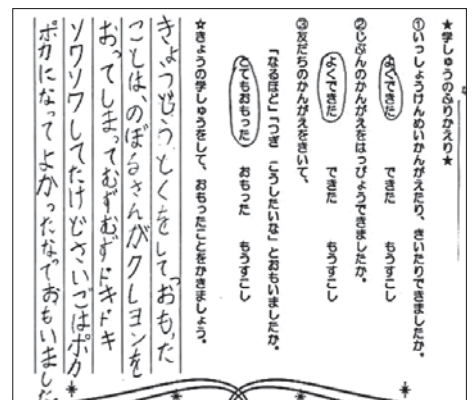 ★学しゅうのふりかえり★
①いっしょうけんめいかんがえたり、きいたりできましたか。
よくできた できた もうすこし
②じぶんのかんがえをはっぴょうできましたか。
よくできた できた もうすこし
③友だちのかんがえをきいて、
「なるほど」「つぎ こうしたいな」とおもいましたか。
とてもおもった おもった もうすこし
☆きょうの学しゅうをして、おもったことをかきましょう。
きょうどうとくをしておもった
ことは、のぼるさんがクレヨンを
おってしまってむずむずドキドキ
ソワソワしてたけどさいごはポカ
ポカになってよかったなでおもいました。